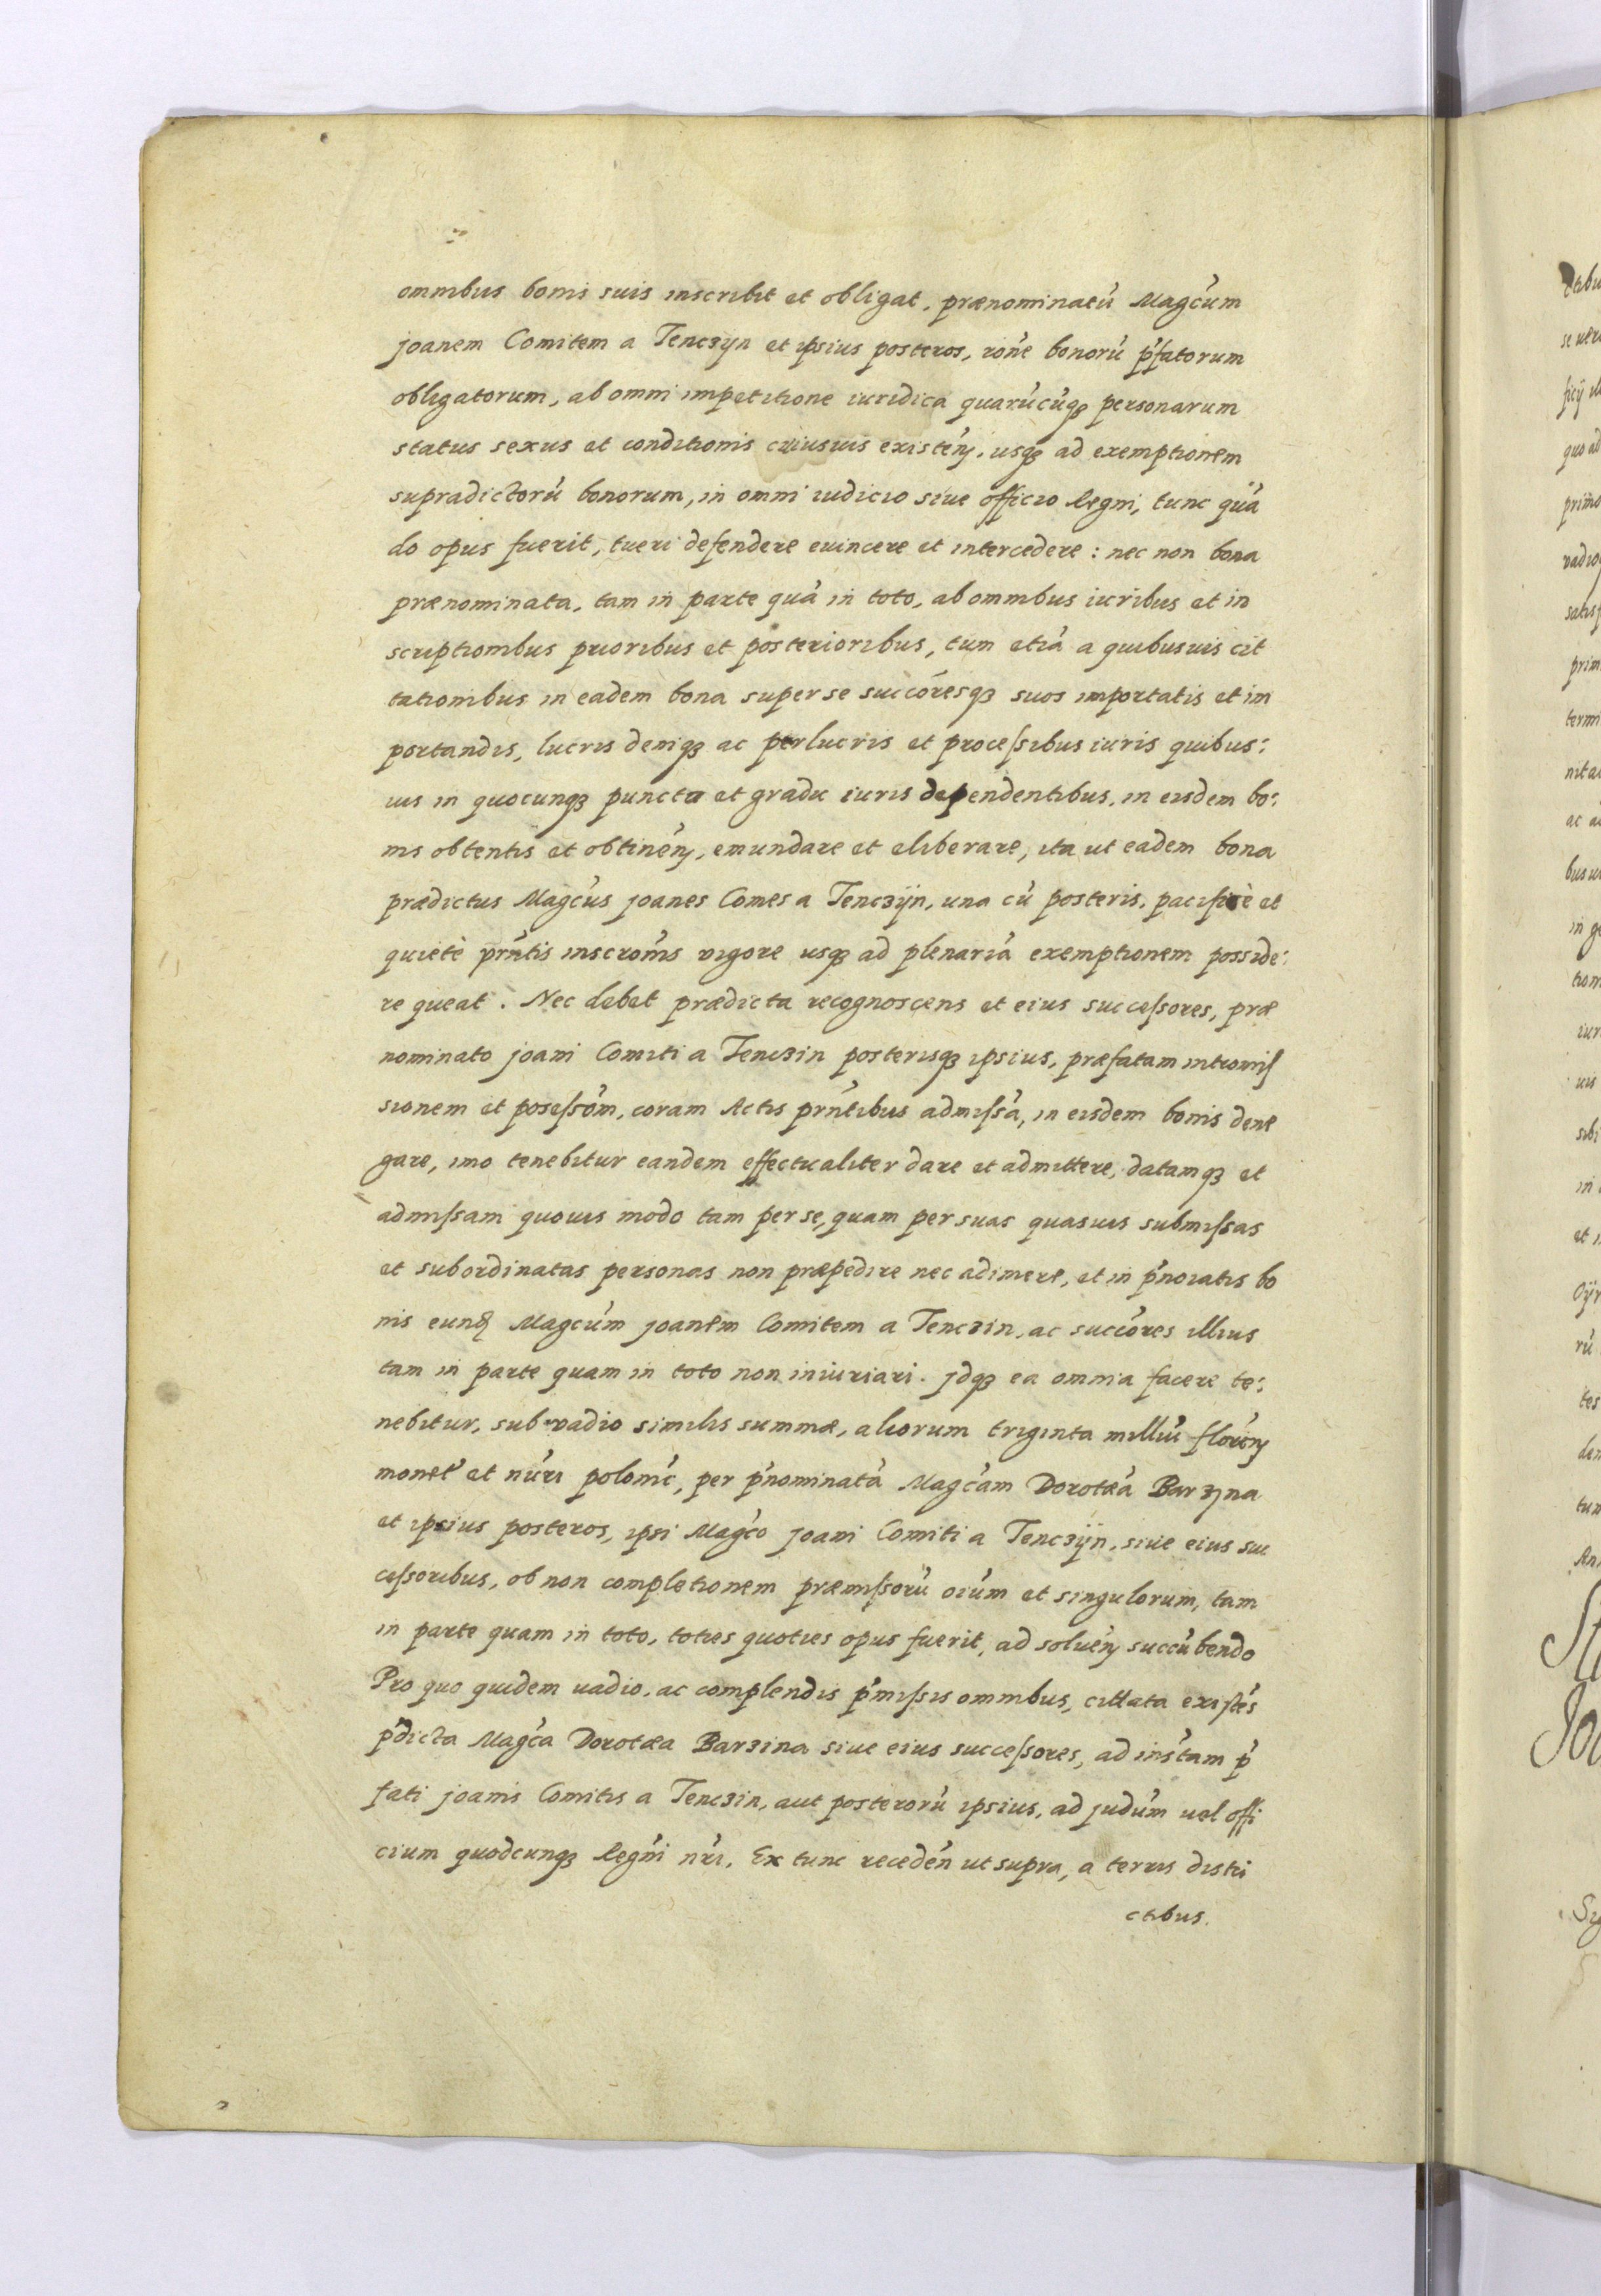 omnibus bonis suis inscribit et obligat, prænominatu᷑ Magcu᷑m
joanem Comitem a Tenczyn et ipsius posteros, rone᷑ bonoru᷑ p᷑fatorum
obligatorum, ab omni impetitione iuridica quaru᷑cu᷑qꝫ personarum
status sexus et conditionis cuiusuis existen᷑, usqꝫ ad exemptionem
supradictoru᷑ bonorum, in omni iudicio siue officio Regni, tunc qua᷑
do opus fuerit, tueri defendere euincere et intercedere : nec non bona
prænominata, tam in parte qua᷑ in toto, ab omnibus iuribus et in
scriptionibus prioribus et posterioribus, tum etia᷑ a quibusuis cit
tationibus in eadem bona super se succo᷑resqꝫ suos importatis et im
portandis, lucris deniqꝫ ac perlucris et processibus iuris quibus:
uis in quocunqꝫ puncto et gradu iuris dependentibus, in eisdem bo:
nis obtentis et obtinen᷑, emundare et eliberare, ita ut eadem bona
prædictus Magcu᷑s joanes Comes a Tenczÿn, una cu᷑ posteris, pacificè et
quietè prn᷑tis inscrom᷑s vigore usqꝫ ad plenaria᷑ exemptionem posside:
re queat. Nec debet prædicta recognoscens et eius successores, præ
nominato joani Comiti a Tenczin posterisqꝫ ipsius, præfatam intromis
sionem et posesso᷑m, coram Actis prn᷑tibus admissa᷑, in eisdem bonis dene
gare, imo tenebitur eandem effectualiter dare et admittere, datamqꝫ et
admissam quouis modo tam per se, quam per suas quasuis submissas
et subordinatas personas non præpedire nec adimere, et in p᷑noiatis bo
nis eund᷑ Magcu᷑m joanem Comitem a Tenczin, ac succo᷑res illius
tam in parte quam in toto non iniuriari. jdqꝫ ea omnia facere te:
nebitur, sub vadio similis summæ, aliorum triginta milliu᷑ floren᷑
monet᷑ et nu᷑ri polonic᷑, per p᷑nominata᷑ Magca᷑m Dorotæa᷑ Barzÿna
et ipsius posteros, ipsi Magco᷑ joani Comiti a Tenczÿn, siue eius suc
cessoribus, ob non completionem præmissoru᷑ oiu᷑m et singulorum, tam
in parte quam in toto, toties quoties opus fuerit, ad soluen᷑ succu᷑bendo
Pro quo quidem uadio, ac complendis p᷑missis omnibus, cittata existe᷑s
p᷑dicta Magca᷑ Dorotæa Barzina siue eius successores, ad ins᷑tam p᷑
fati joanis Comitis a Tenczin, aut posteroru᷑ ipsius, ad judu᷑m uel offi
cium quodcunqꝫ Regni nr᷑i, Ex tunc receden᷑ ut supra, a terris distri
ctibus.